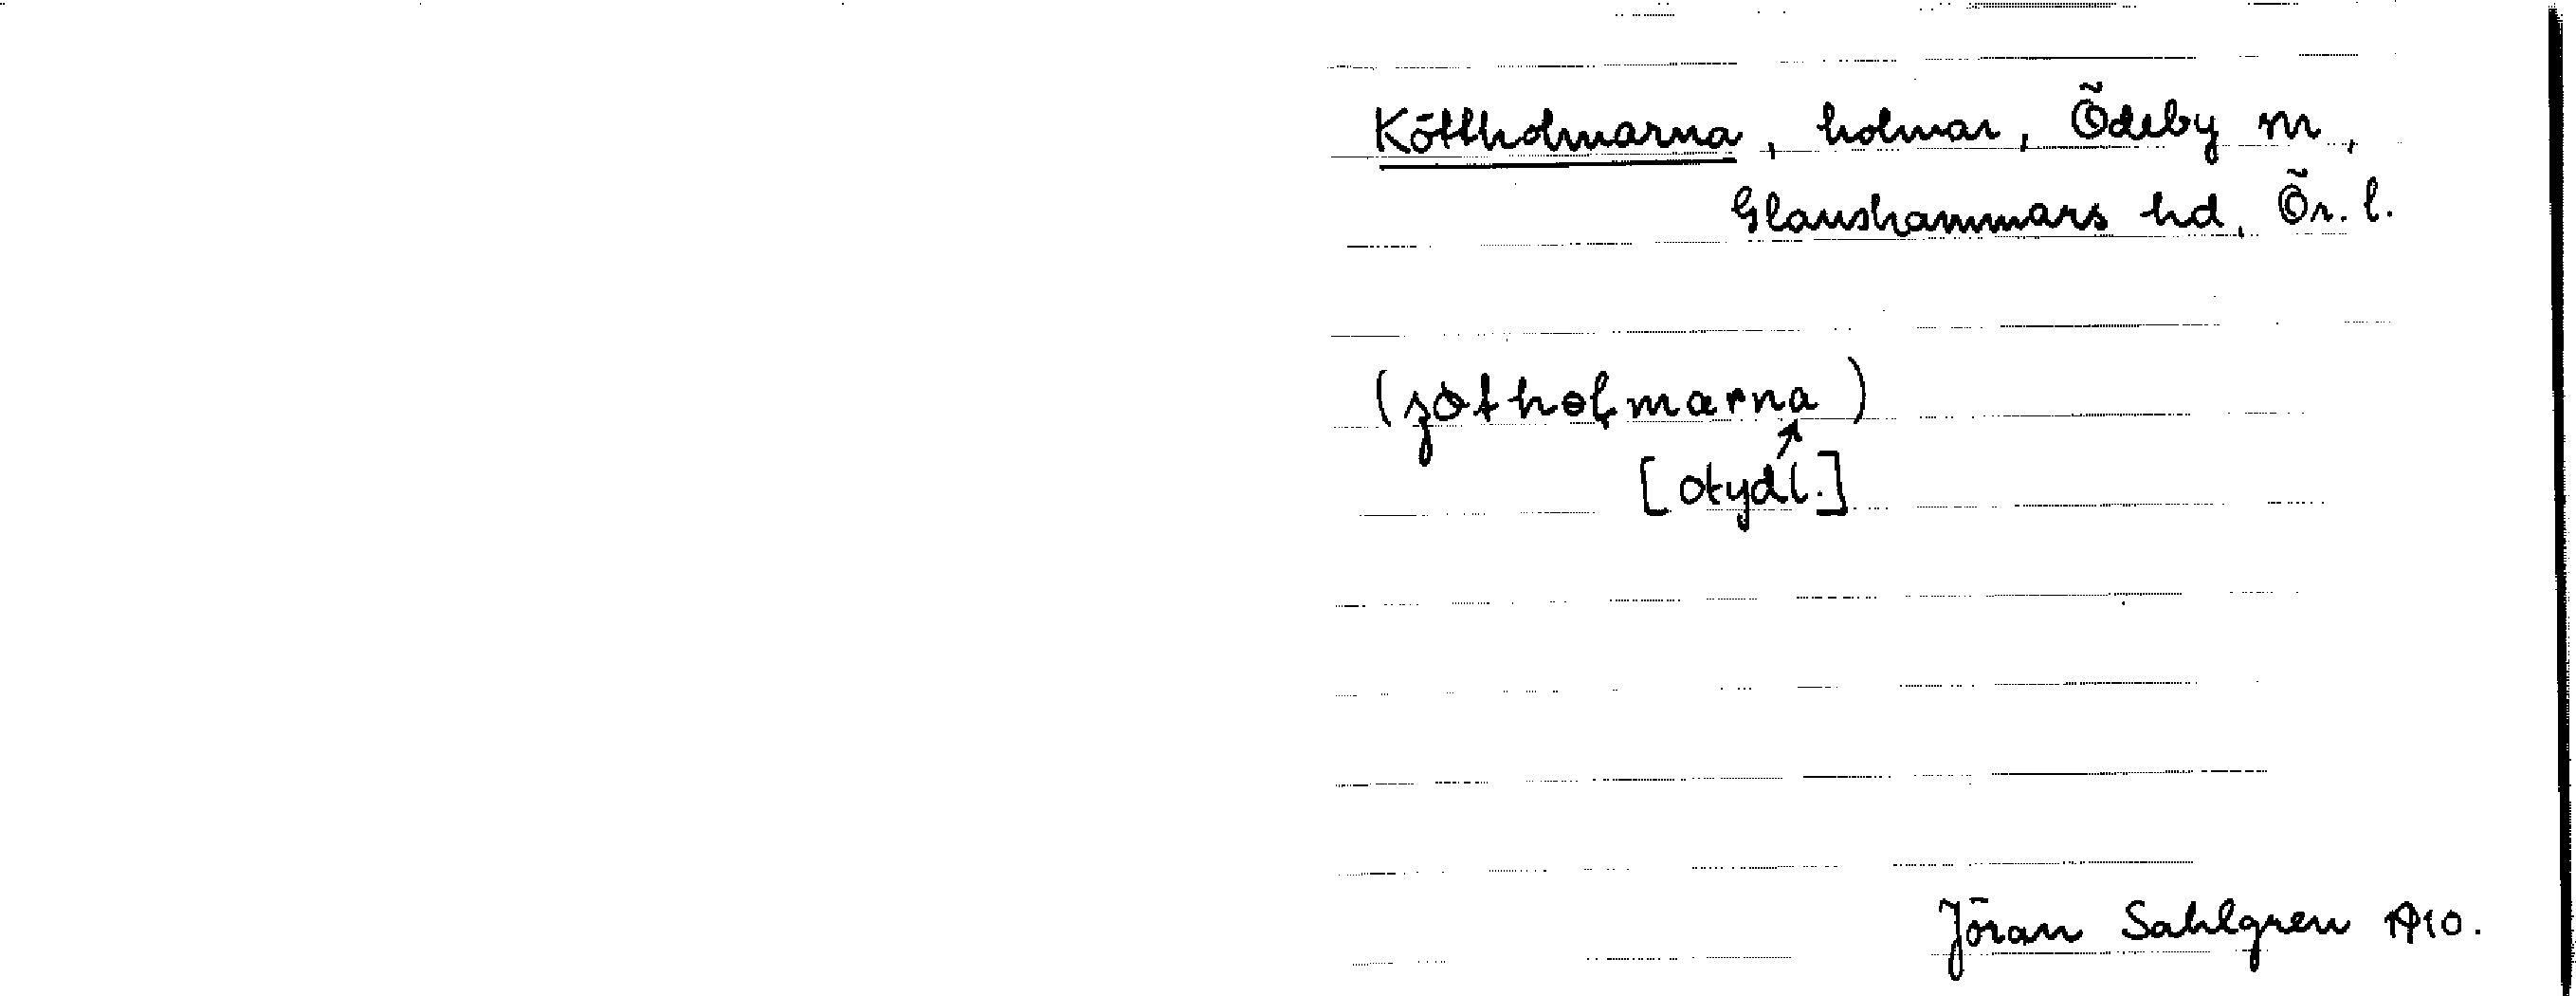 Köttholmarna, holmar, Ödeby sn,
Glanshammars hd, Ör. l.
(ʒøthoɭmarna)
[otydl.]
Jöran Sahlgren 1910.